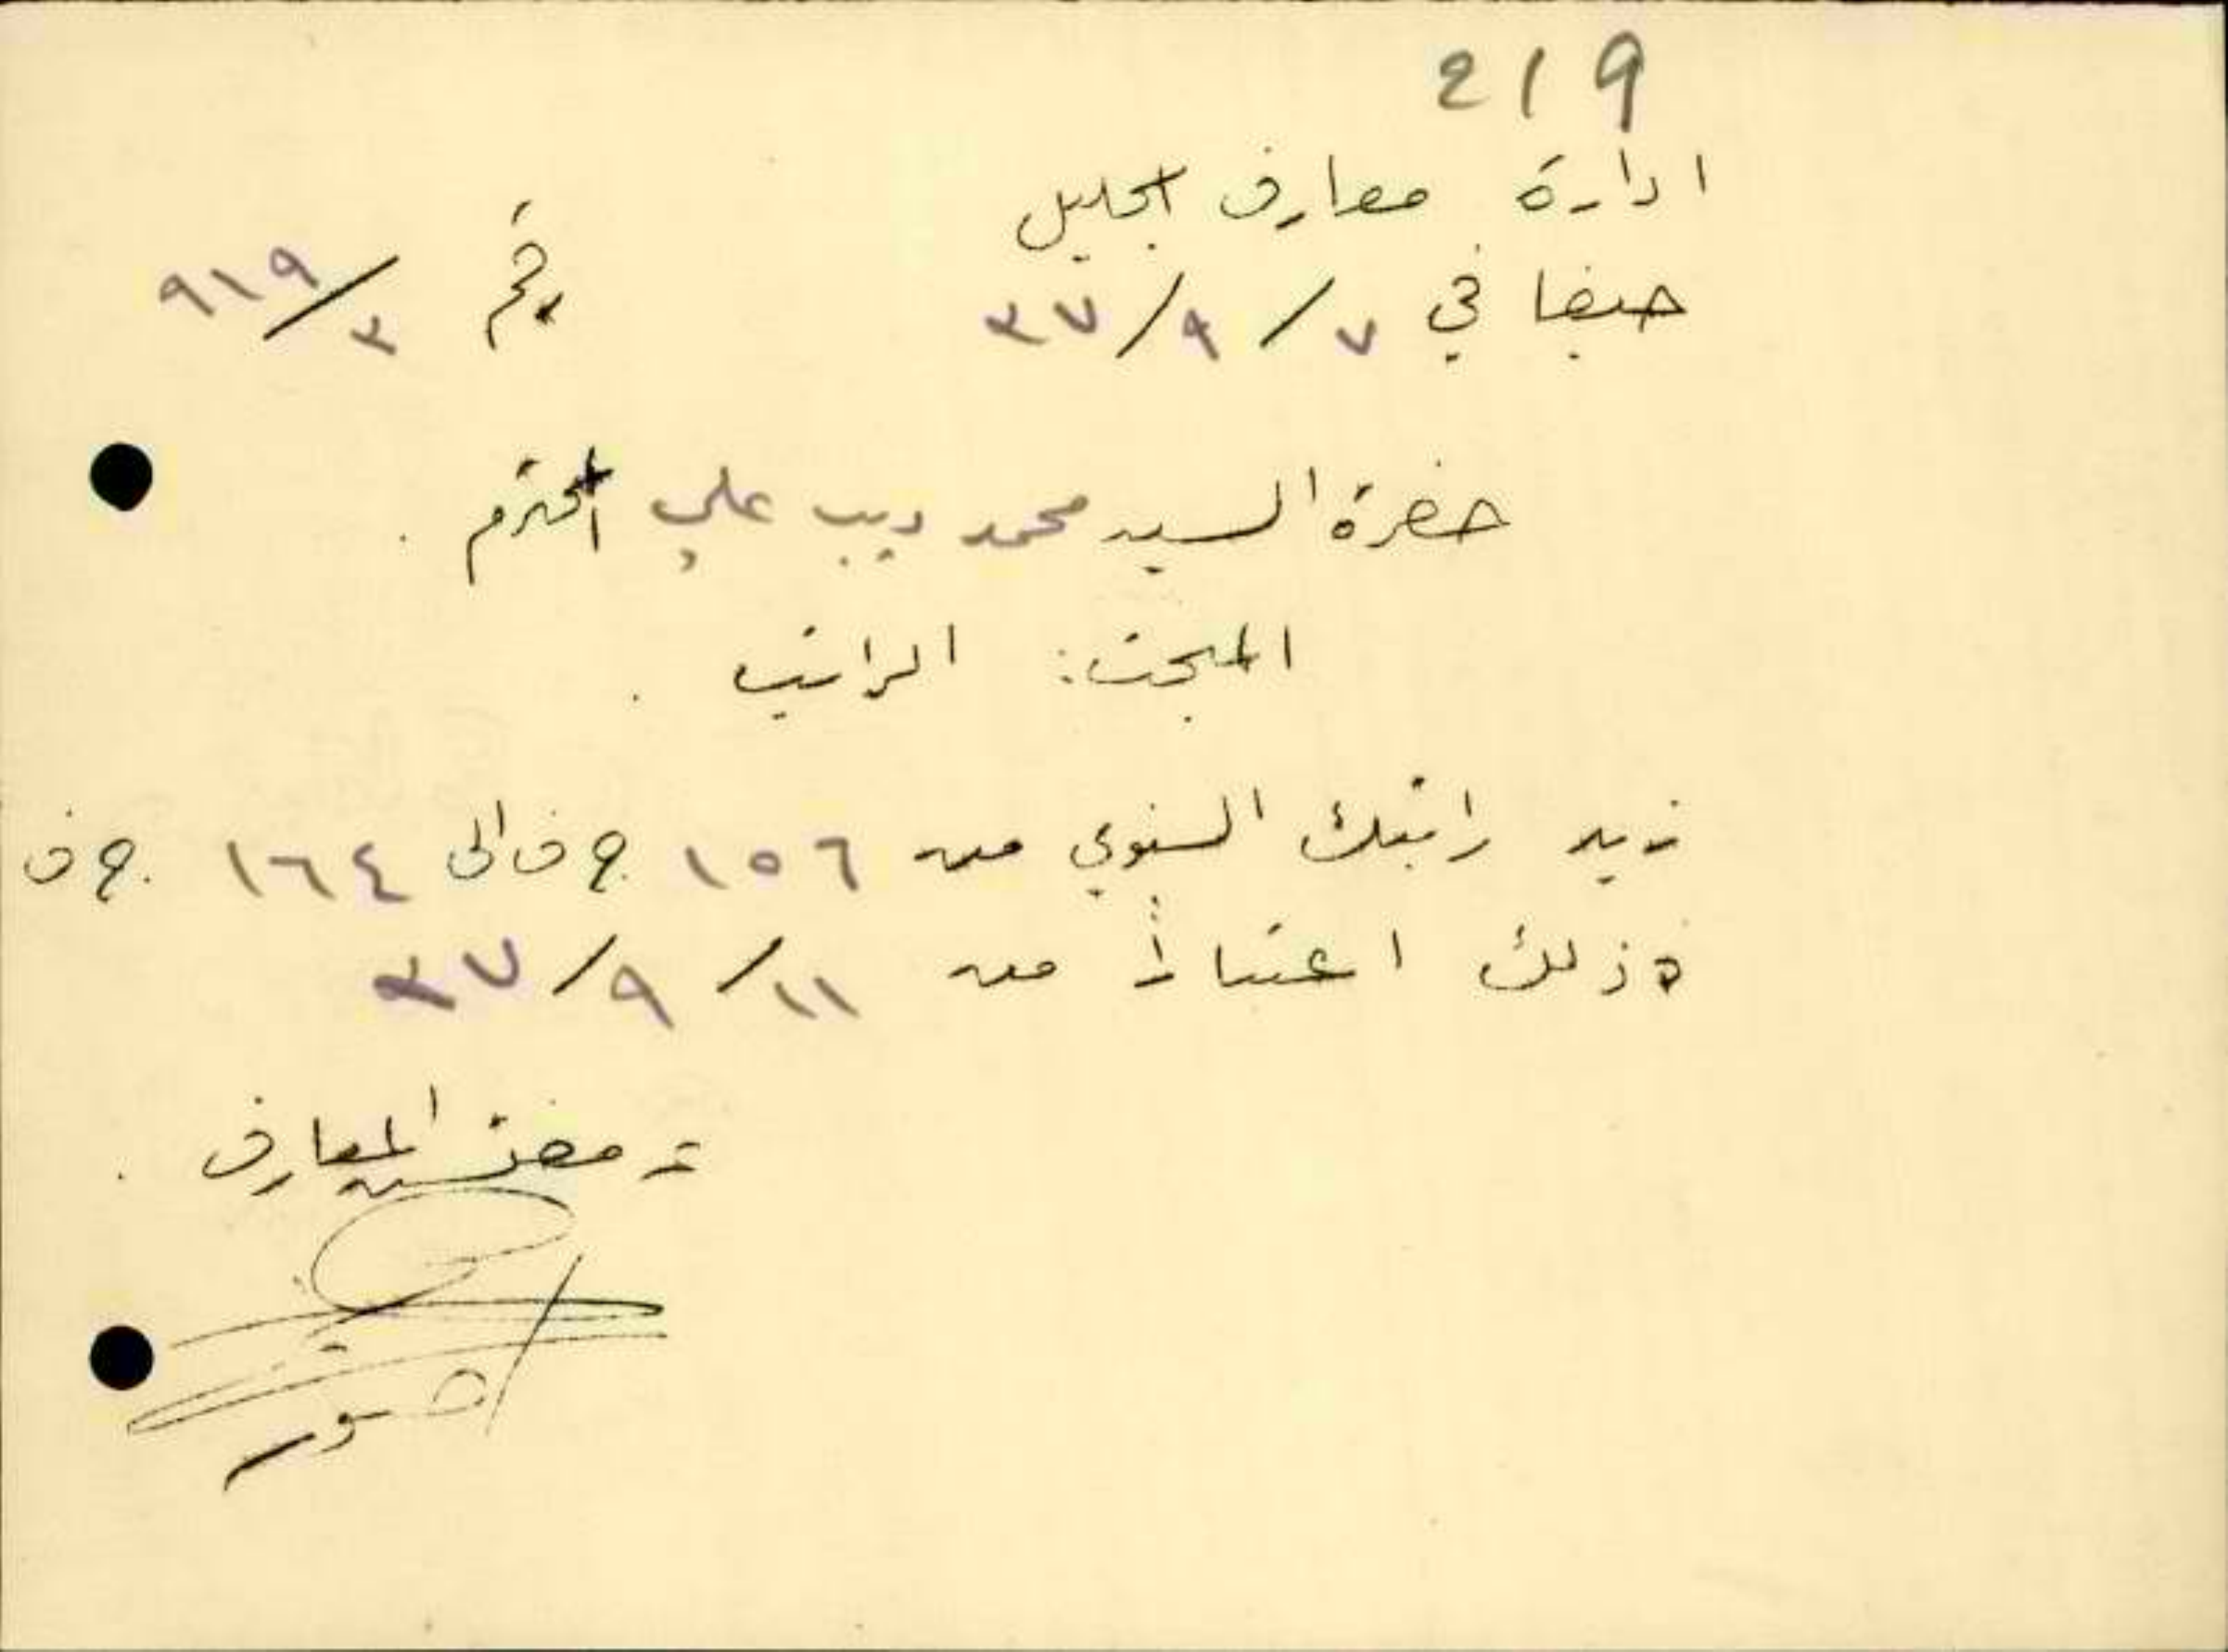 219
ادارة معارف الجليل
حيفا في ٧/٩/٣٧
رقم ٣/٩١٩
حضرة السيد محمد ديب علي المحترم .
المبحث: الراتب .
زيد راتبك السنوي من ١٥٦ ج ف الى ١٦٤ ج ف
وذلك اعتباراً من ١١/٩/٣٧
مفتش المعارف .